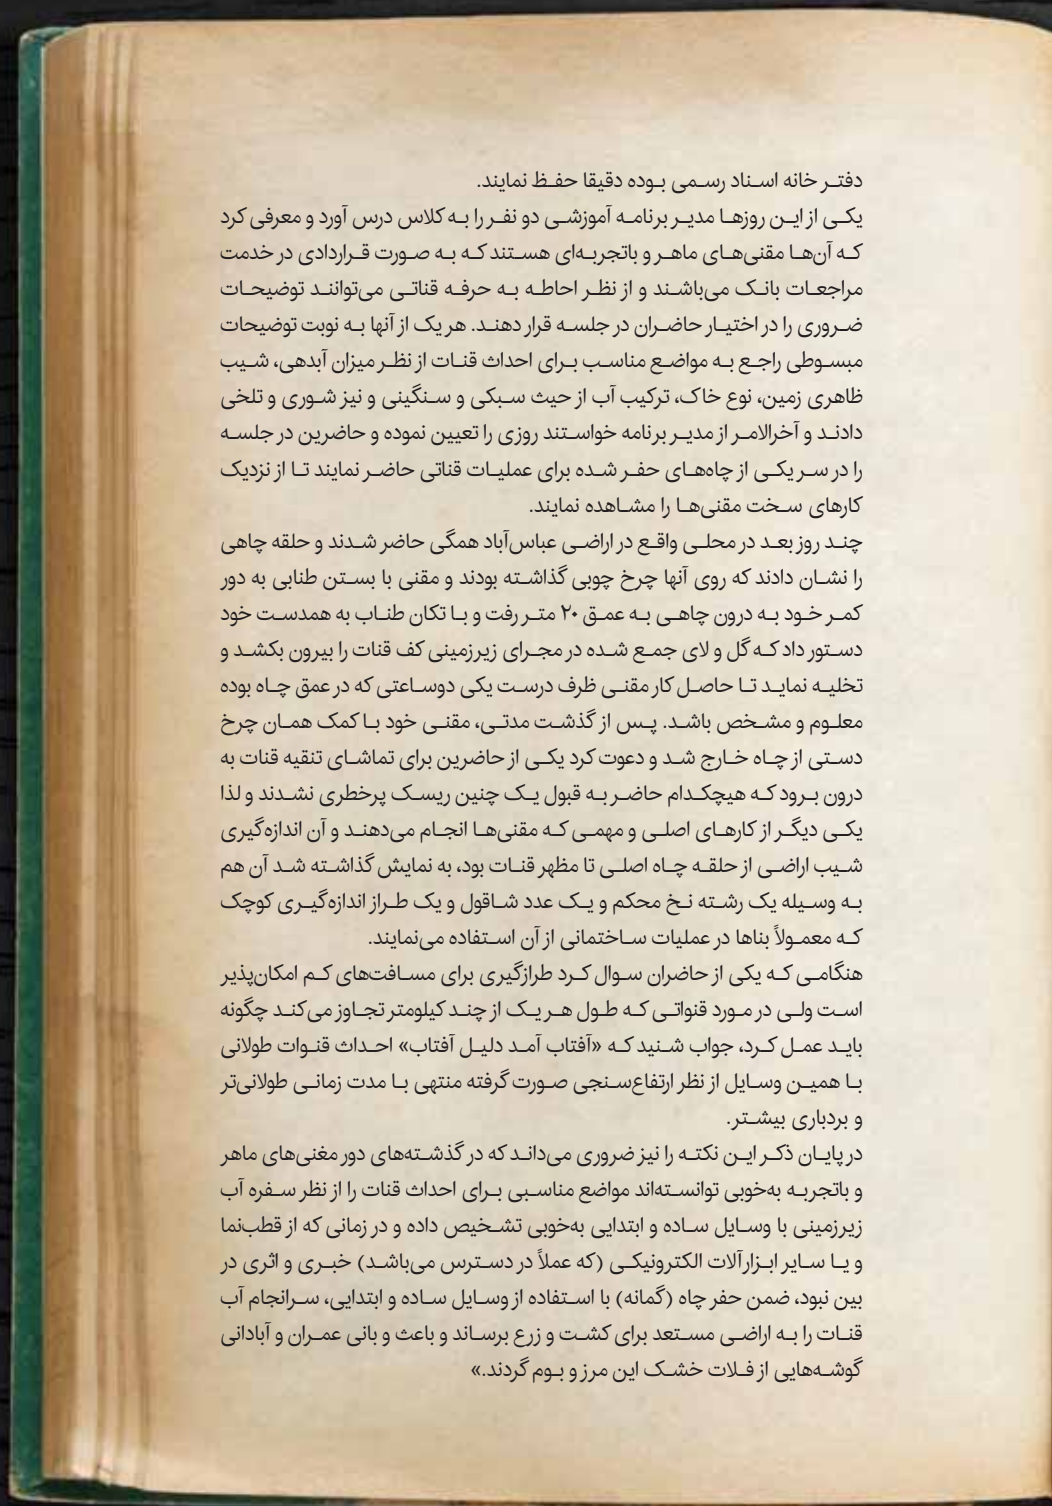 دفتر خانه اسناد رسمی بوده دقیقا حفظ نمایند.
یکی از این روزها مدیر برنامه آموزشی دو نفر را به کلاس درس آورد و معرفی کرد
که آن‌ها مقنی‌های ماهر و باتجربه‌ای هستند که به صورت قراردادی در خدمت
مراجعات بانک می‌باشند و از نظر احاطه به حرفه قناتی می‌توانند توضیحات
ضروری را در اختیار حاضران در جلسه قرار دهند. هر یک از آنها به نوبت توضیحات
مبسوطی راجع به مواضع مناسب برای احداث قنات از نظر میزان آبدهی، شیب
ظاهری زمین، نوع خاک، ترکیب آب از حیث سبکی و سنگینی و نیز شوری و تلخی
دادند و آخرالامر از مدیر برنامه خواستند روزی را تعیین نموده و حاضرین در جلسه
را در سر یکی از چاه‌های حفر شده برای عملیات قناتی حاضر نمایند تا از نزدیک
کارهای سخت مقنی‌ها را مشاهده نمایند.
چند روز بعد در محلی واقع در اراضی عباس‌آباد همگی حاضر شدند و حلقه چاهی
را نشان دادند که روی آنها چرخ چوبی گذاشته بودند و مقنی با بستن طنابی به دور
کمر خود به درون چاهی به عمق ۲۰ متر رفت و با تکان طناب به همدست خود
دستور داد که گل و لای جمع شده در مجرای زیرزمینی کف قنات را بیرون بکشد و
تخلیه نماید تا حاصل کار مقنی ظرف درست یکی دوساعتی که در عمق چاه بوده
معلوم و مشخص باشد. پس از گذشت مدتی، مقنی خود با کمک همان چرخ
دستی از چاه خارج شد و دعوت کرد یکی از حاضرین برای تماشای تنقیه قنات به
درون برود که هیچکدام حاضر به قبول یک چنین ریسک پرخطری نشدند و لذا
یکی دیگر از کارهای اصلی و مهمی که مقنی‌ها انجام می‌دهند و آن اندازه‌گیری
شیب اراضی از حلقه چاه اصلی تا مظهر قنات بود، به نمایش گذاشته شد آن هم
به وسیله یک رشته نخ محکم و یک عدد شاقول و یک طراز اندازه‌گیری کوچک
که معمولاً بناها در عملیات ساختمانی از آن استفاده می‌نمایند.
هنگامی که یکی از حاضران سوال کرد طرازگیری برای مسافت‌های کم امکان‌پذیر
است ولی در مورد قنواتی که طول هر یک از چند کیلومتر تجاوز می‌کند چگونه
باید عمل کرد، جواب شنید که «آفتاب آمد دلیل آفتاب» احداث قنوات طولانی
با همین وسایل از نظر ارتفاع‌سنجی صورت گرفته منتهی با مدت زمانی طولانی‌تر
و بردباری بیشتر.
در پایان ذکر این نکته را نیز ضروری می‌داند که در گذشته‌های دور مغنی‌های ماهر
و باتجربه به‌خوبی توانسته‌اند مواضع مناسبی برای احداث قنات را از نظر سفره آب
زیرزمینی با وسایل ساده و ابتدایی به‌خوبی تشخیص داده و در زمانی که از قطب‌نما
و یا سایر ابزارآلات الکترونیکی (که عملاً در دسترس می‌باشد) خبری و اثری در
بین نبود، ضمن حفر چاه (گمانه) با استفاده از وسایل ساده و ابتدایی، سرانجام آب
قنات را به اراضی مستعد برای کشت و زرع برساند و باعث و بانی عمران و آبادانی
گوشه‌هایی از فلات خشک این مرز و بوم گردند.»